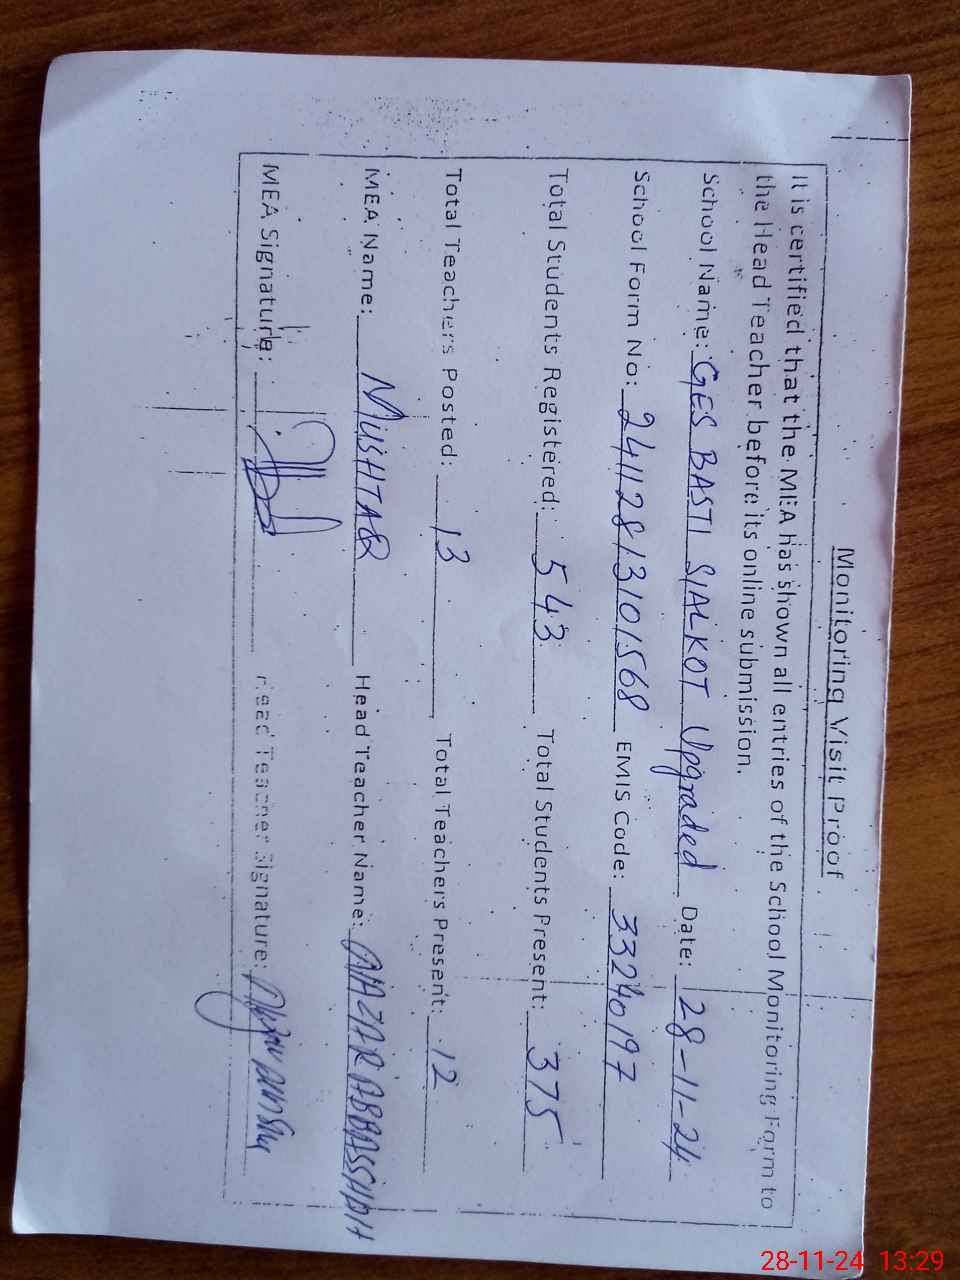 Monitoring Visit Proof
It is certified that the MEA has shown all entries of the School Monitoring Form to
the Head Teacher before its online submission.
School Name: GES BASTI SIALKOT Upgraded Date: 28-11-24
School Form No: 24112813101568 EMIS Code: 33240197
Total Students Registered: 543 Total Students Present: 375
Total Teachers Posted: 13 Total Teachers Present: 12
MEA Name: MUSHTAQ Head Teacher Name: ABBASSHAH
MEA Signature: Head Teacher Signature:
28-11-24 13:29